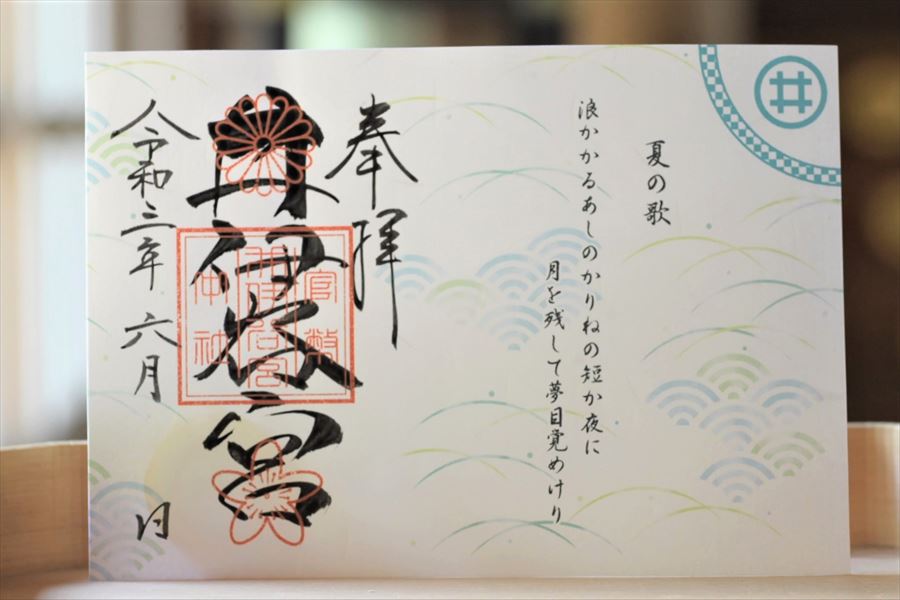 井
夏の歌
浪かかるあしのかりねの短か夜に
月を残して夢目覚めけり
奉拝
井伊谷宮
官幣
中社
井伊谷宮
令和三年 六月 日